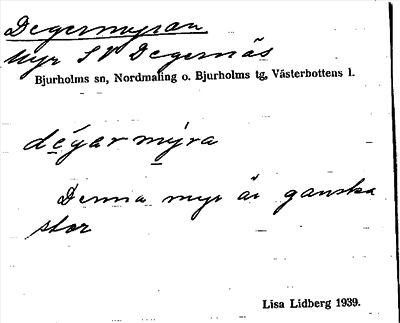 Degermyran
Myr S V Degernäs
Bjurholms sn, Nordmaling o. Bjurholms tg, Västerbottens l.
dégarmýra
Denna myr är ganska
stor
Lisa Lidberg 1939.